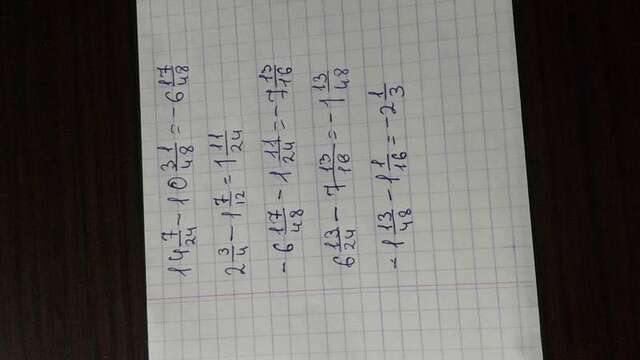 14 7/24 - 10 31/48 = -6 17/48
2 3/4 - 1 7/12 = 1 11/24
- 6 17/48 - 1 11/24 = -7 13/16
6 13/24 - 7 13/16 = -1 13/48
- 1 13/48 - 1 1/16 = -2 1/3